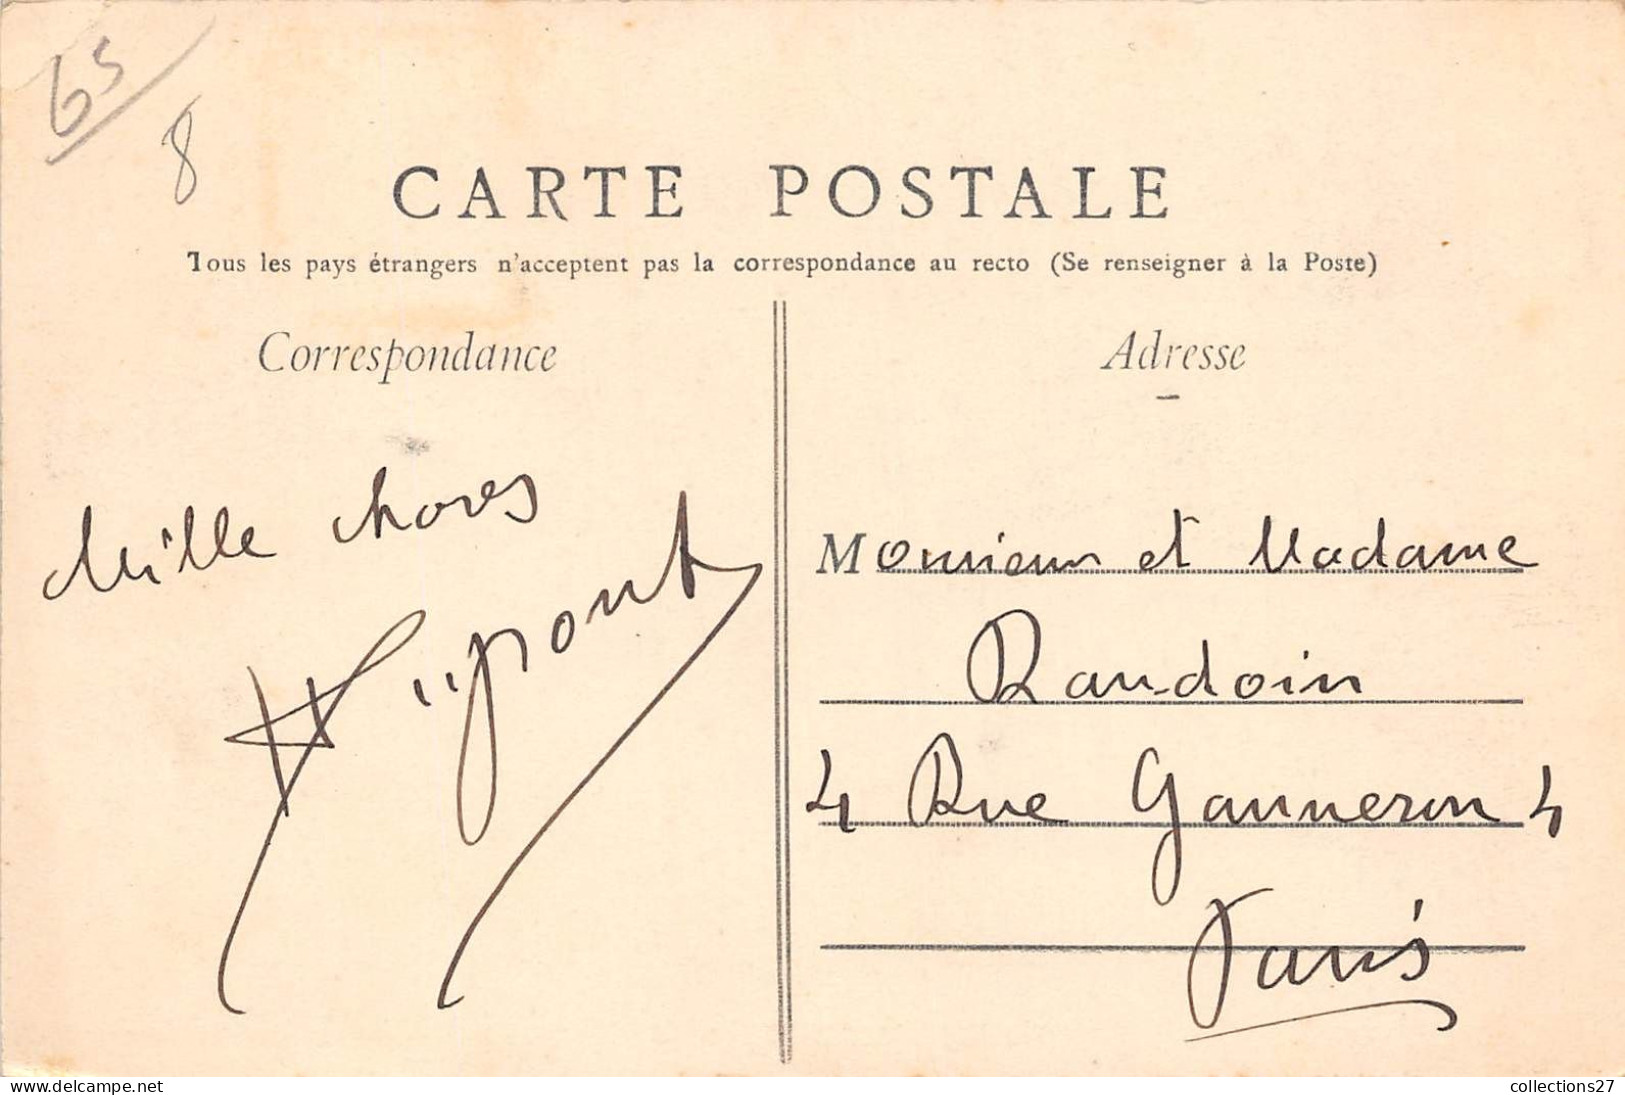 65
8
CARTE POSTALE
Tous les pays étrangers n'acceptent pas la correspondance au recto (Se renseigner à la Poste)
Correspondance
Mille choses
Adresse
Monsieur et Madame
Baudoin
4 Rue Ganneron 4
Paris
collections27